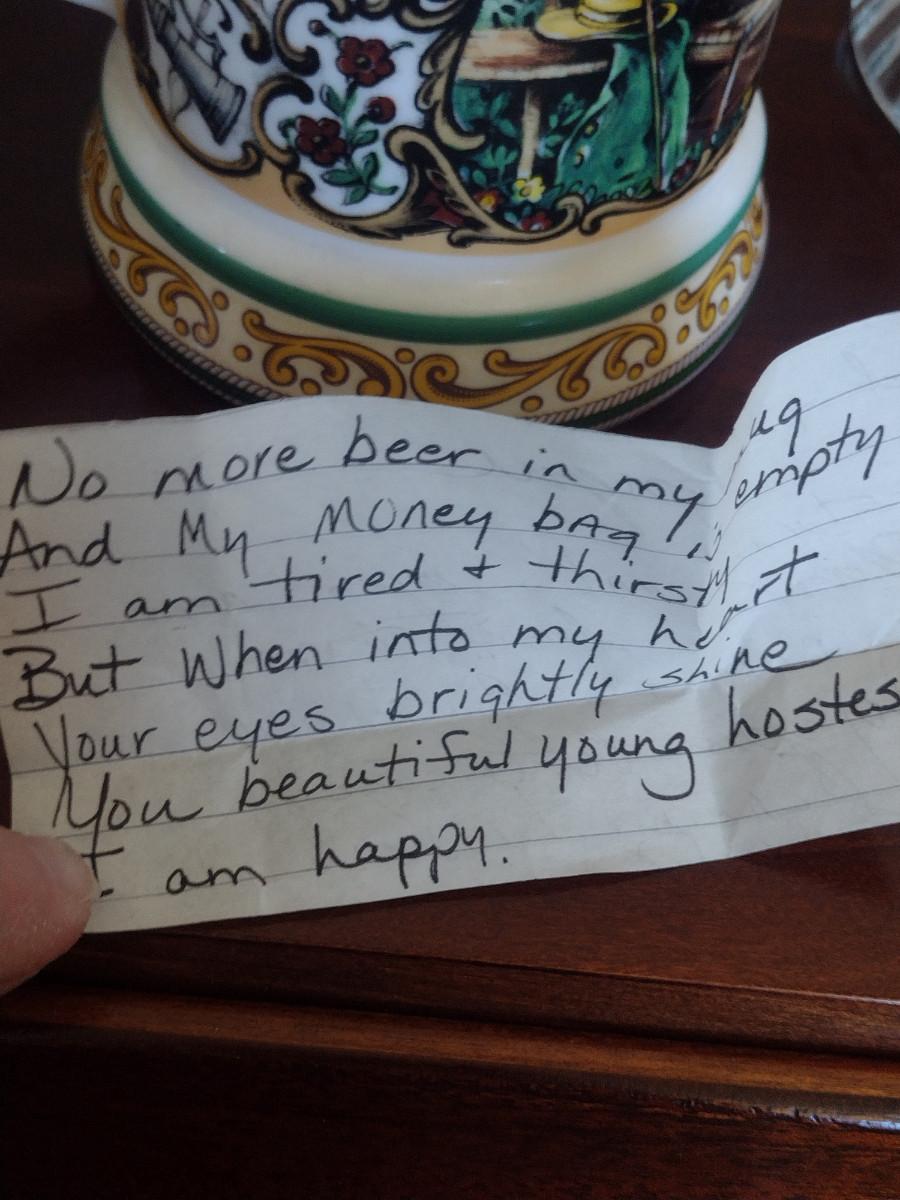 No more beer in my ug
And My Money bAg is empty
I am tired & thirsty
But When into my heart
Your eyes brightly shine
You beautiful young hostes
I am happy.